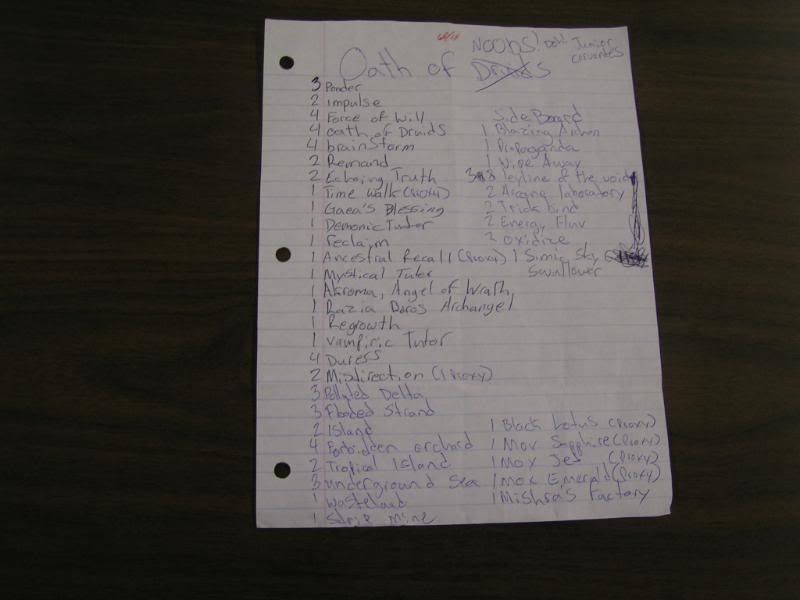 NOObs! Doh! Junior Cervantes
Oath of Druids
3 Ponder
2 Impulse
4 Force of Will
4 oath of Druids
4 brainstorm
2 Remand
2 Echoing Truth
1 Time Walk (Proxy)
1 Gaea's Blessing
1 Demonic Tutor
1 reclaim
1 Ancestral Recall (Proxy)
1 Mystical Tutor
1 Akroma, Angel of Wrath,
1 Razia Boros Archangel
1 Regrowth
1 Vampiric Tutor
4 Duress
2 Misdirection (1 Proxy)
3 Polluted Delta
3 Flooded Strand
2 Island
4 Forbidden orchard
2 Tropical Island
3 underground Sea
1 Wasteland
1 Strip Mine
Side Board
1 Blazing Archon
1 Propaganda
1 Wipe Away
3 leyline of the void
2 Arcane laboratory
2 Trickbind
2 Energy Flux
2 Oxidize
1 Simic Sky
Swallower
1 Black Lotus (Proxy)
1 Mox Sapphire (Proxy)
1 Mox Jet (Proxy)
1 mox Emerald (Proxy)
1 Mishra's Factory